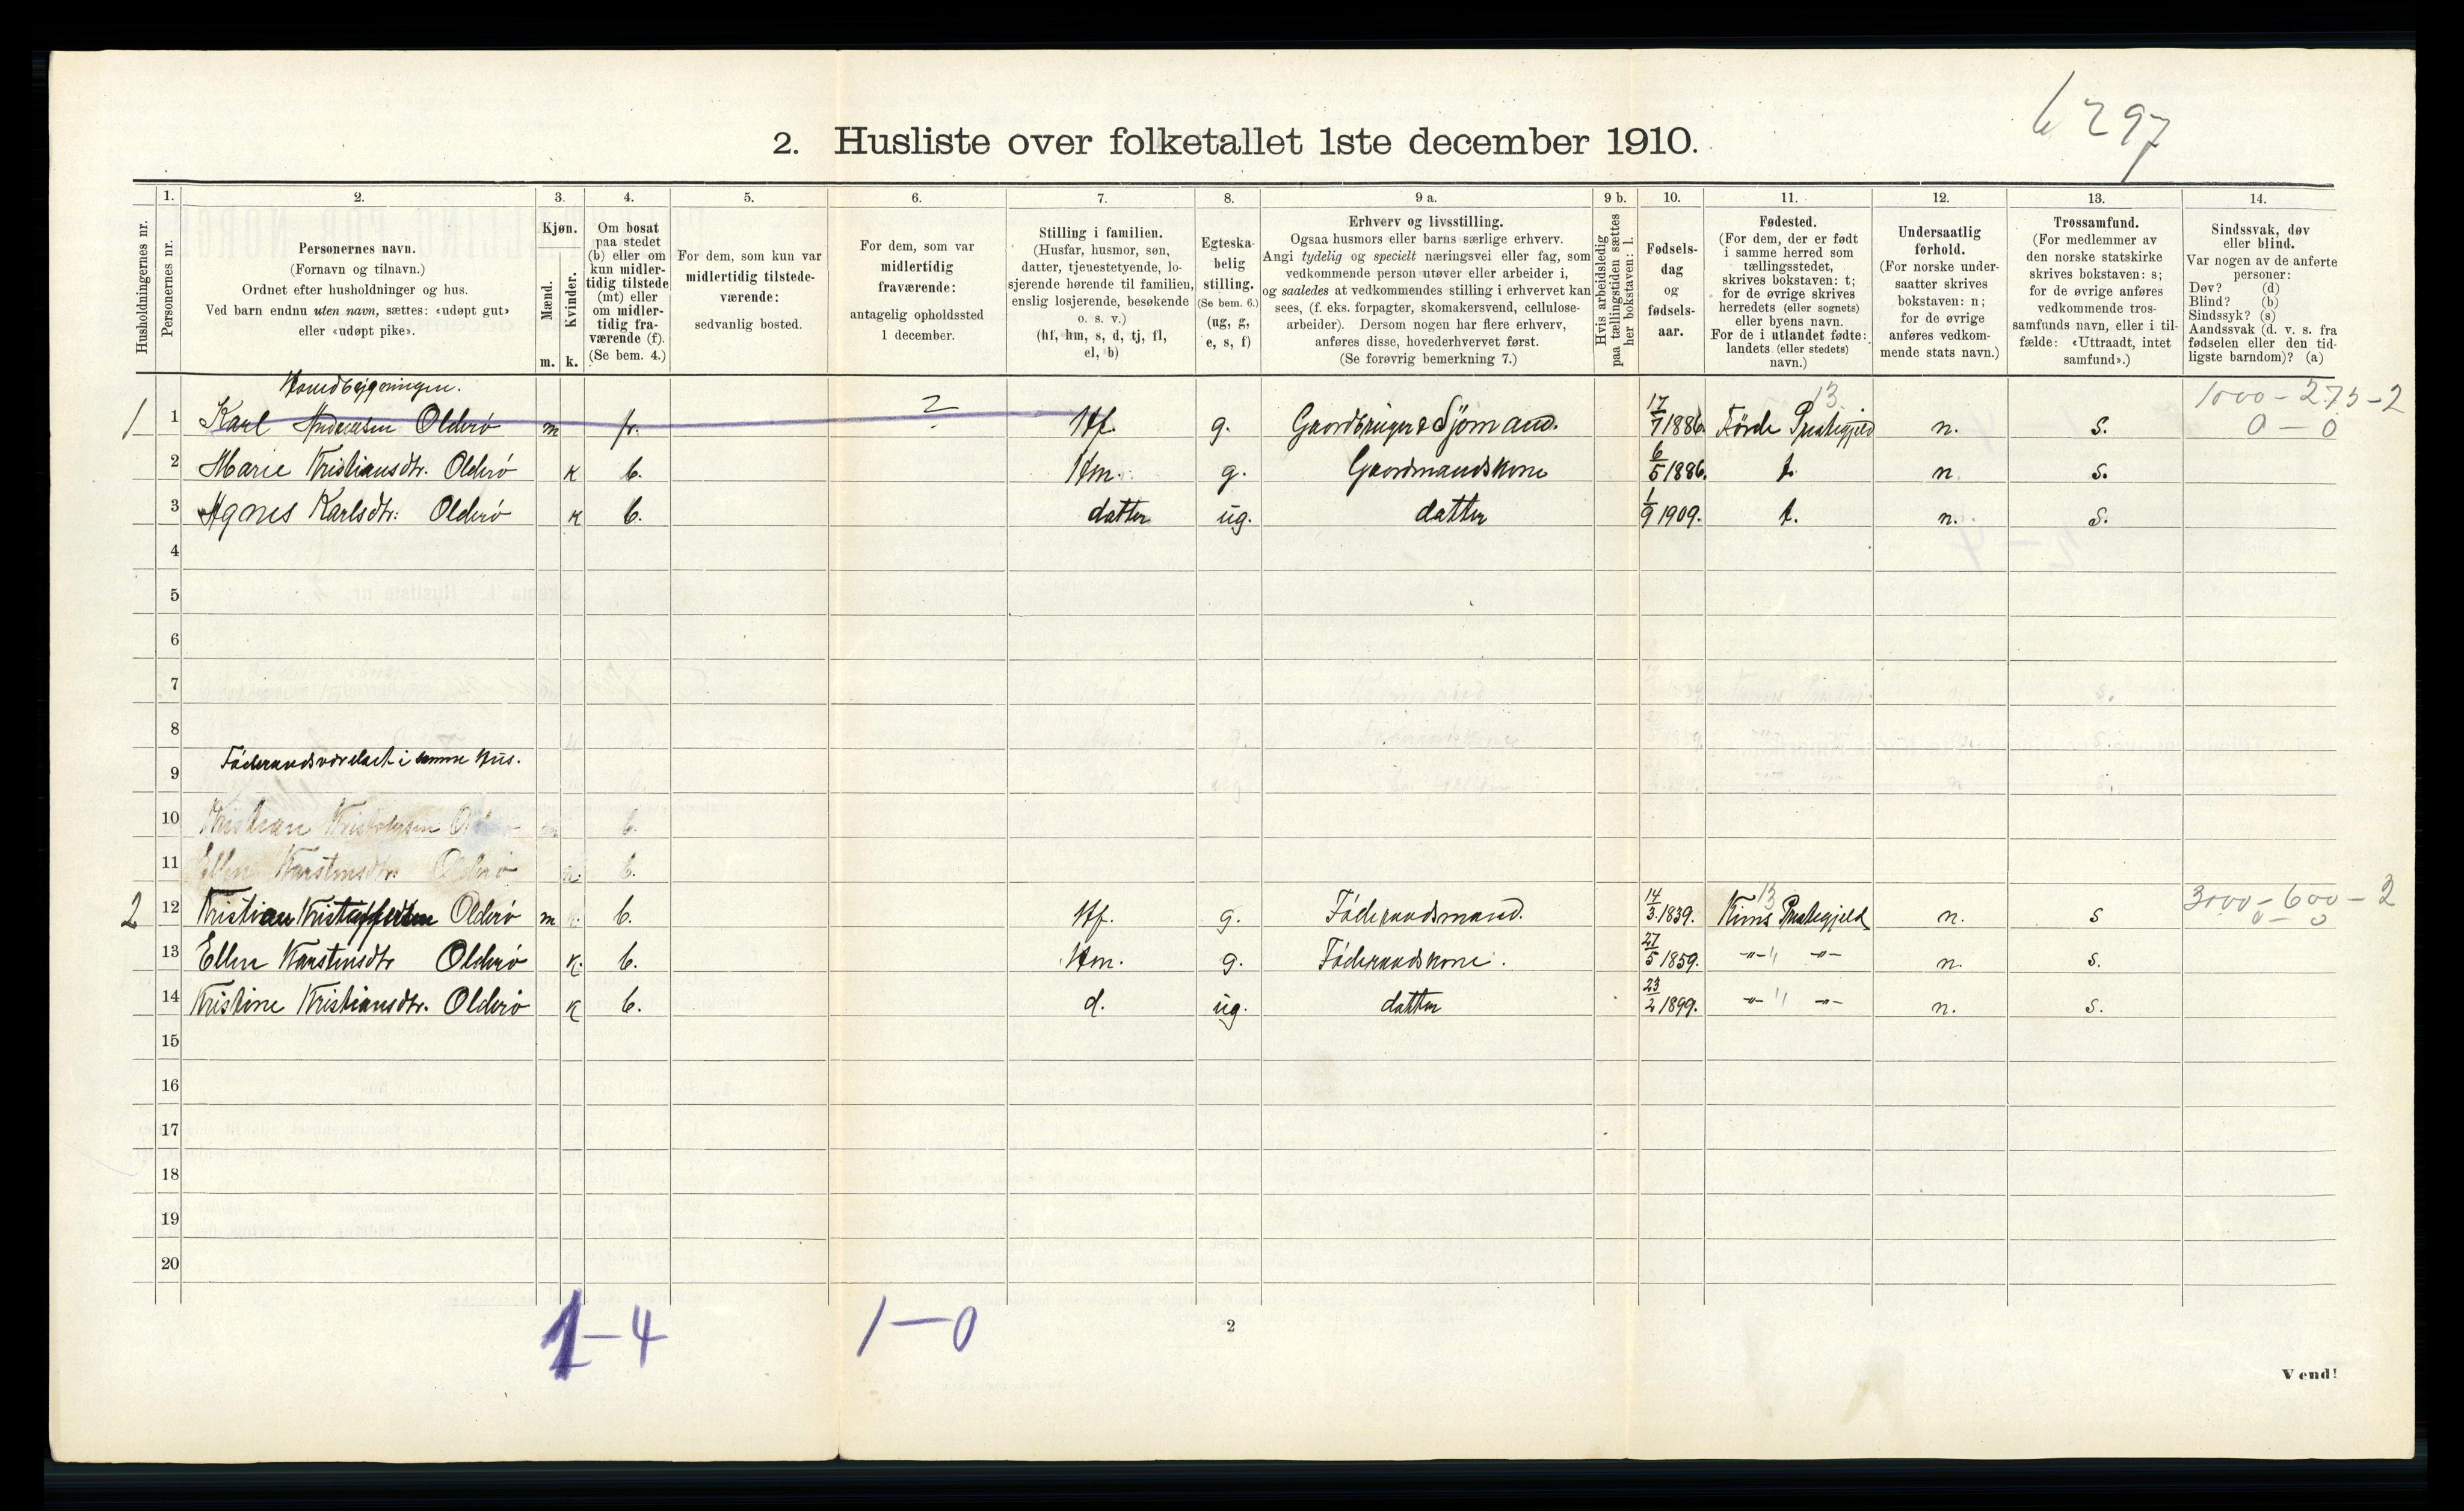 6297
2. Husliste over folketallet 1ste december 1910.
Husholdningernes nr.
1.
Personernes nr.
2.
Personernes navn.
(Fornavn og tilnavn.)
Ordnet efter husholdninger og hus.
Ved barn endnu uten navn, sættes: «udøpt gut»
eller «udøpt pike».
3.
Kjøn.
Mænd.
Kvinder.
m. k.
4.
Om bosat
paa stedet
(b) eller om
kun midler-
tidig tilstede
(mt) eller
om midler-
tidig fra-
værende (f).
(Se bem. 4.)
5.
For dem, som kun var
midlertidig tilstede-
værende:
sedvanlig bosted.
6.
For dem, som var
midlertidig
fraværende:
antagelig opholdssted
1 december.
7.
Stilling i familien.
(Husfar, husmor, søn,
datter, tjenestetyende, lo-
sjerende hørende til familien,
enslig losjerende, besøkende
o. s. v.)
(hf, hm, s, d, tj, fl,
el, b)
8.
Egteska-
belig
stilling.
(Se bem. 6.)
(ug, g,
e, s, f)
9 a.
Erhverv og livsstilling.
Ogsaa husmors eller barns særlige erhverv.
Angi tydelig og specielt næringsvei eller fag, som
vedkommende person utøver eller arbeider i,
og saaledes at vedkommendes stilling i erhvervet kan
sees, (f. eks. forpagter, skomakersvend, cellulose-
arbeider). Dersom nogen har flere erhverv,
anføres disse, hovederhvervet først.
(Se forøvrig bemerkning 7.)
9 b.
Hvis arbeidsledig
paa tællingstiden sættes
her bokstaven: l.
10.
Fødsels-
dag
og
fødsels-
aar.
11.
Fødested.
(For dem, der er født
i samme herred som
tællingsstedet,
skrives bokstaven: t;
for de øvrige skrives
herredets (eller sognets)
eller byens navn.
For de i utlandet fødte:
landets (eller stedets)
navn.)
12.
Undersaatlig
forhold.
(For norske under-
saatter skrives
bokstaven: n;
for de øvrige
anføres vedkom-
mende stats navn.)
13.
Trossamfund.
(For medlemmer av
den norske statskirke
skrives bokstaven: s;
for de øvrige anføres
vedkommende tros-
samfunds navn, eller i til-
fælde: «Uttraadt, intet
samfund».)
14.
Sindssvak, døv
eller blind.
Var nogen av de anførte
personer:
Døv? (d)
Blind? (b)
Sindssyk? (s)
Aandssvak (d. v. s. fra
fødselen eller den tid-
ligste barndom)? (a)
Hovedbygningen. 13 1000 - 275 - 2
1 1 Karl Andersen Olderø m fr. ? Hf. g. Gaardbruger & Sjömand. 17/7 1886. Förde Prestegjeld n. s. 0 - 0
2 Marie Kristiansdtr. Olderø k b. Hm. g. Gaardmandskone 6/5 1886. t. n. s.
3 Agnes Karlsdtr. Olderø k b. datter ug. datter 1/9 1909. t. n. s.
4
5
6
7
8
Föderaadsværelset i samme Hus.
9
10 Kristian b.
11 Ellen Karstensdtr. Olderø k. b.
13 3000 - 600 - 2
2 12 Kristian Kristoffersen Olderø m b. Hf. g. Föderaadsmand. 14/3 1839. Kinns Prestegjeld n. s 0 - 0
13 Ellen Karstensdtr Olderø k. b. Hm. g. Föderaadskone. 27/5 1859. -"- " -"- n. s.
14 Kristine Kristiansdtr. Olderø k b. d. ug. datter 23/2 1899. -"- " -"- n. s.
15
16
17
18
19
20
1-4 1-0
2
Vend!